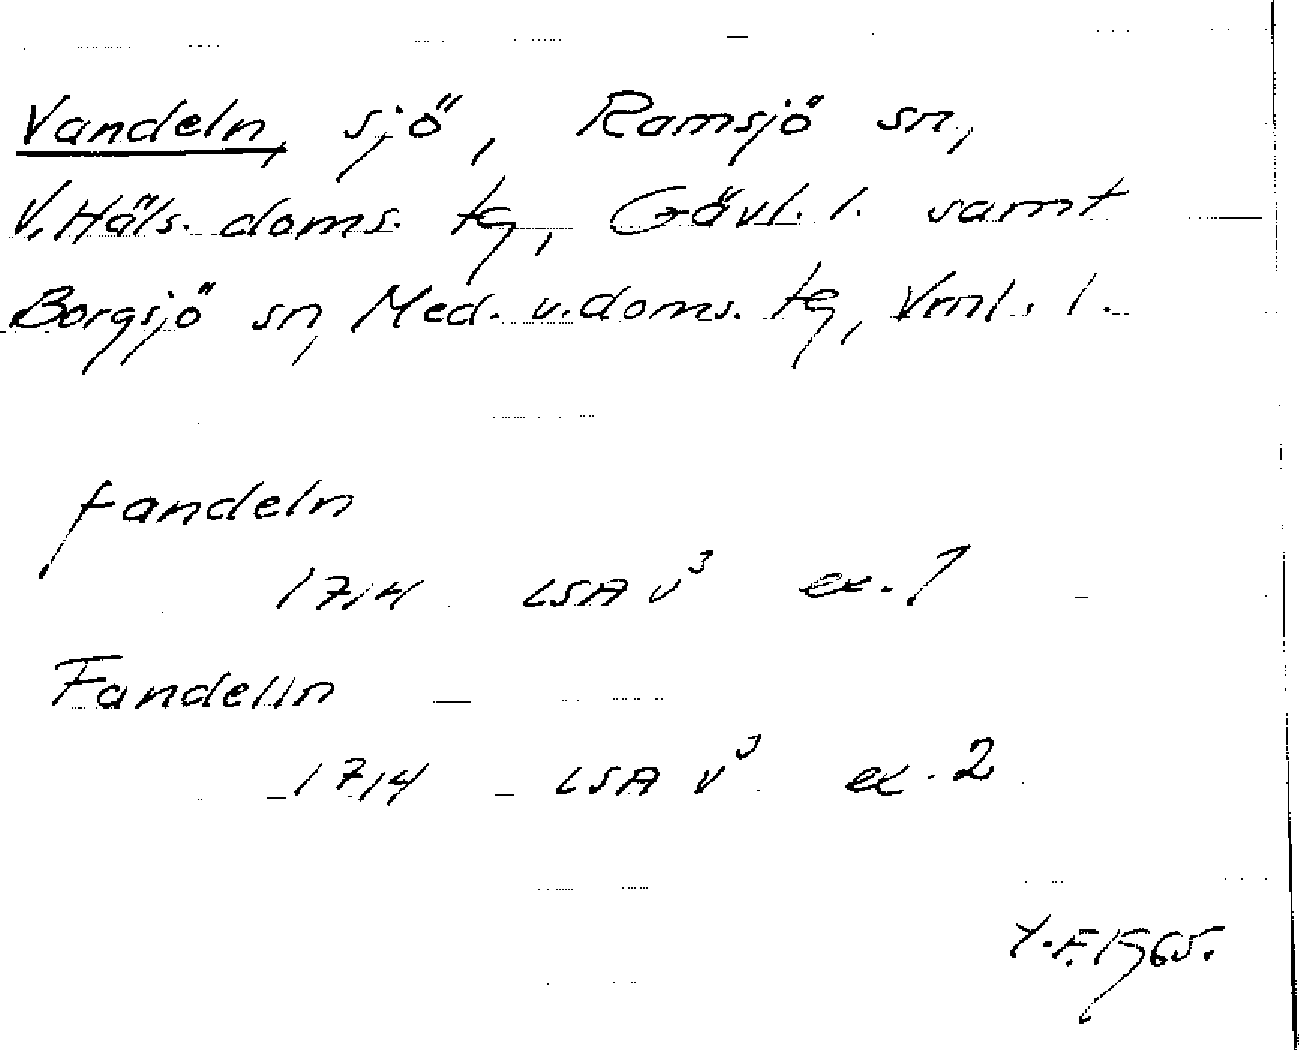 Vandeln, sjö, Ramsjö sn,
V. Häls. doms. tg, Gävl. l. samt
Borgsjö sn, Med. v. doms. tg, Vml. l.
fandeln
1714 LSA v³ ex. 1
Fandelin
1714 LSA v³ ex. 2
Y.F. 1965.